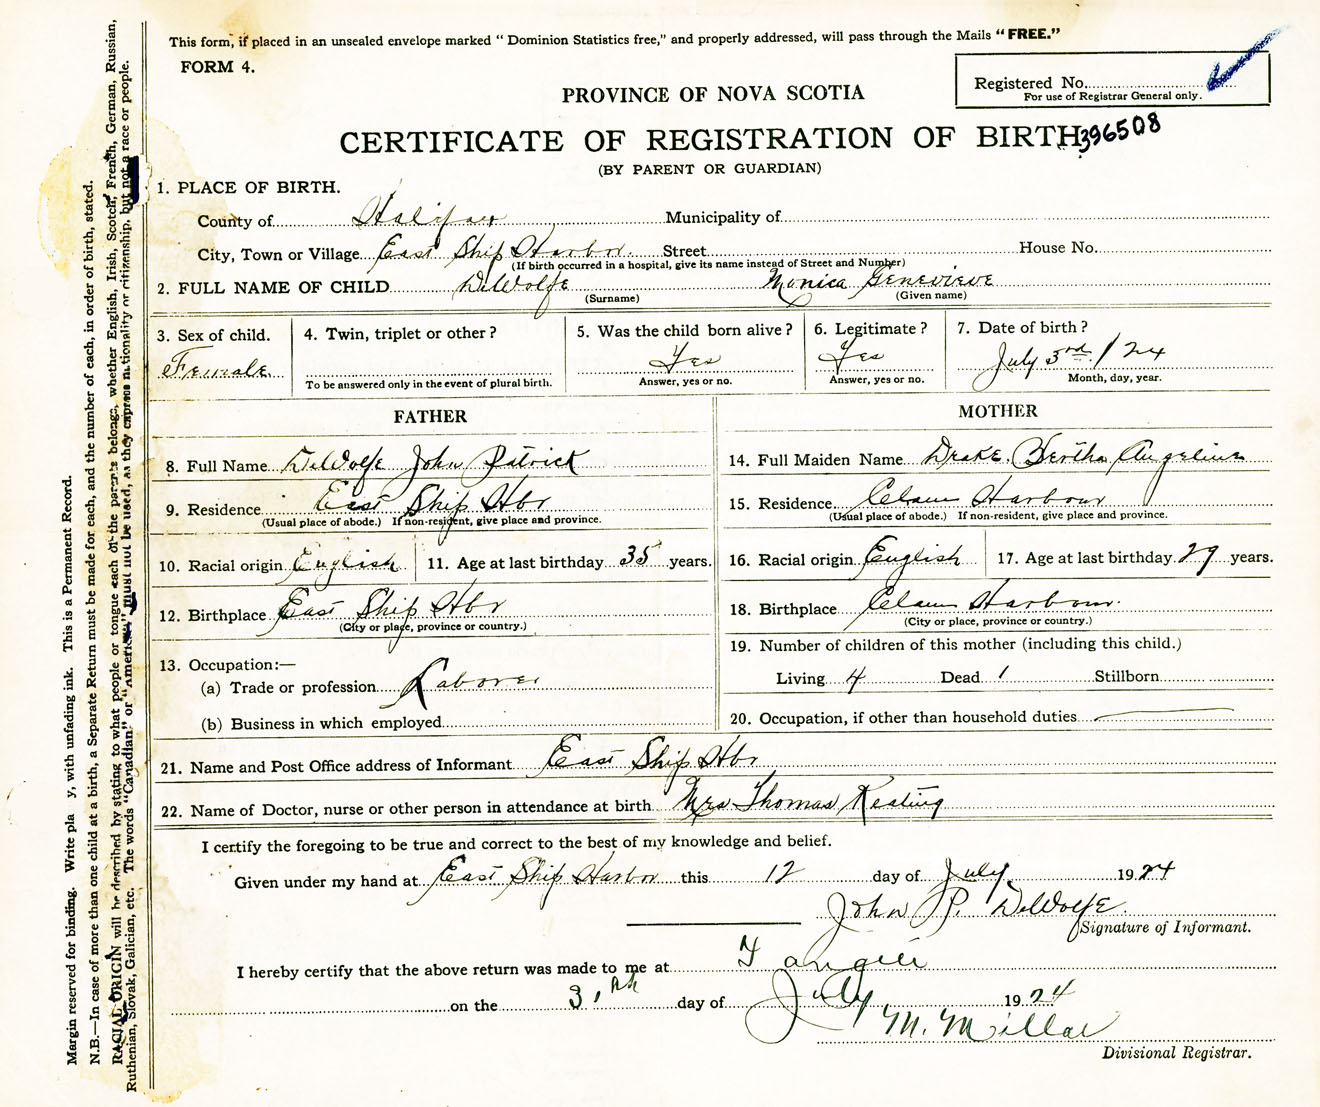 This form, if placed in an unsealed envelope marked "Dominion Statistics free," and properly addressed, will pass through the Mails "FREE."
FORM 4.
Registered No.
For use of Registrar General only.
PROVINCE OF NOVA SCOTIA
CERTIFICATE OF REGISTRATION OF BIRTH 396508
(BY PARENT OR GUARDIAN)
1. PLACE OF BIRTH.
County of Halifax Municipality of
City, Town or Village East Ship Harbor Street House No.
(If birth occurred in a hospital, give its name instead of Street and Number)
2. FULL NAME OF CHILD DeWolfe Monica Genevieve
(Surname) (Given name)
3. Sex of child. 4. Twin, triplet or other? 5. Was the child born alive? 6. Legitimate? 7. Date of birth?
Female Yes Yes July 3rd / 24
To be answered only in the event of plural birth. Answer, yes or no. Answer, yes or no. Month, day, year.
FATHER
8. Full Name DeWolfe John Patrick
9. Residence East Ship Hbr
(Usual place of abode.) If non-resident, give place and province.
10. Racial origin English 11. Age at last birthday 35 years.
12. Birthplace East Ship Hbr
(City or place, province or country.)
13. Occupation:—
(a) Trade or profession Laborer
(b) Business in which employed
MOTHER
14. Full Maiden Name Drake Bertha
15. Residence Clam Harbour
(Usual place of abode.) If non-resident, give place and province.
16. Racial origin English 17. Age at last birthday 29 years.
18. Birthplace Clam Harbour
(City or place, province or country.)
19. Number of children of this mother (including this child.)
Living 4 Dead 1 Stillborn
20. Occupation, if other than household duties
21. Name and Post Office address of Informant East Ship Hbr
22. Name of Doctor, nurse or other person in attendance at birth Mrs Thomas Keating
I certify the foregoing to be true and correct to the best of my knowledge and belief.
Given under my hand at East Ship Harbor this 12 day of July 1924
John P. DeWolfe
Signature of Informant.
I hereby certify that the above return was made to me at Tangier
on the 31th day of July 1924
M. Millar
Divisional Registrar.
Margin reserved for binding. Write pla y, with unfading ink. This is a Permanent Record.
N.B.—In case of more than one child at a birth, a Separate Return must be made for each, and the number of each, in order of birth, stated.
RACIAL ORIGIN will be described by stating to what people or tongue each of the parents belongs, whether English, Irish, Scotch, French, German, Russian,
Ruthenian, Slovak, Galician, etc. The words "Canadian" or "American" must not be used, as they express nationality or citizenship, but not a race or people.